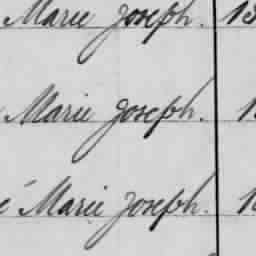 Marie Joseph.
Marie Joseph.
Marie Joseph.